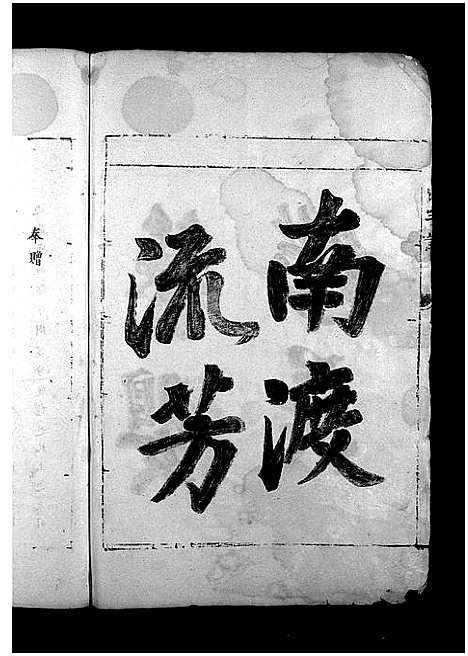 南渡
流芳
奉贈